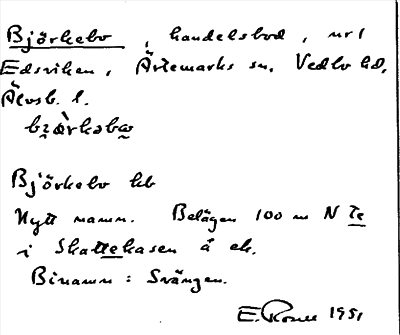 Björkebo, handelsbod, nr 1
Edsviken, Ärtemarks sn, Vedbo hd,
Älvsb. l.
Björkebo hb
Nytt namn. Belägen 100 m N Te
i Skattekasen å ek.
Binamn: Svängen.
E. 1951